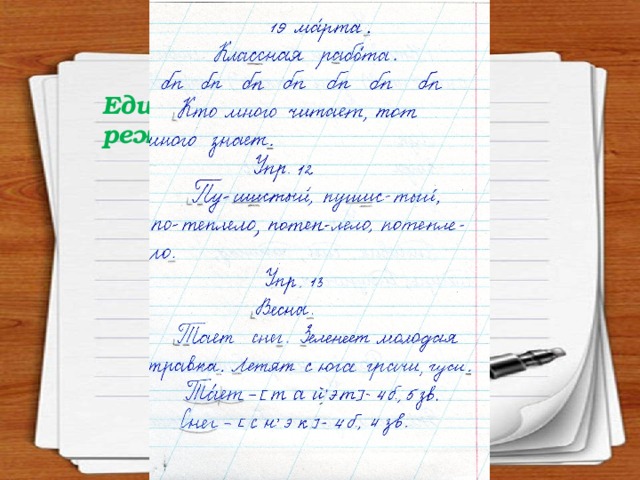 19 ма́рта.
Классная рабо́та.
бп бп бп бп бп бп бп
Еди
Кто много читает, тот
реж
много знает.
Упр. 12
Пу-шистый, пушис-тый,
по-теплело, потеп-лело, потепле-
ло.
Упр. 13
Весна.
Тает снег. Зеленеет молодая
травка. Летят с юга грачи, гуси.
Та́ет – [т а й' э т] - 4 б, 5 зв.
Снег – [с н' э к] - 4 б, 4 зв.